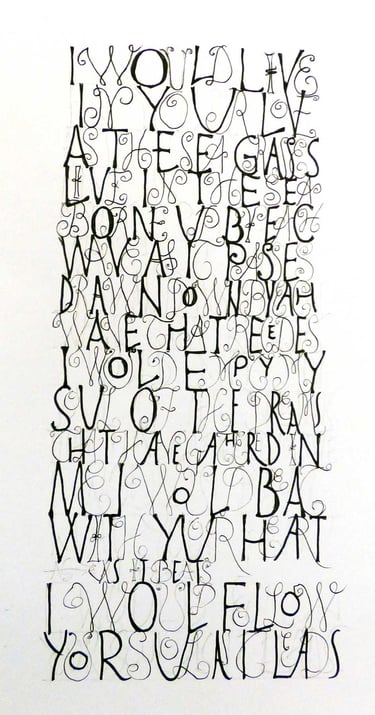 I WOULD LIVE
IN YOUR LOVE
AS THE SEA GRASSES
LIVE IN THE SEA
BORNE UP BY EACH
WAVE AS IT PASSES
DRAWN DOWN BY EACH
WAVE THAT RECEDES
I WOULD EMPTY MY
SOUL OF THE DREAMS
THAT HAVE GATHERED IN
ME I WOULD BEAT
WITH YOUR HEART
AS IT BEATS
I WOULD FOLLOW
YOUR SOUL AS IT LEADS